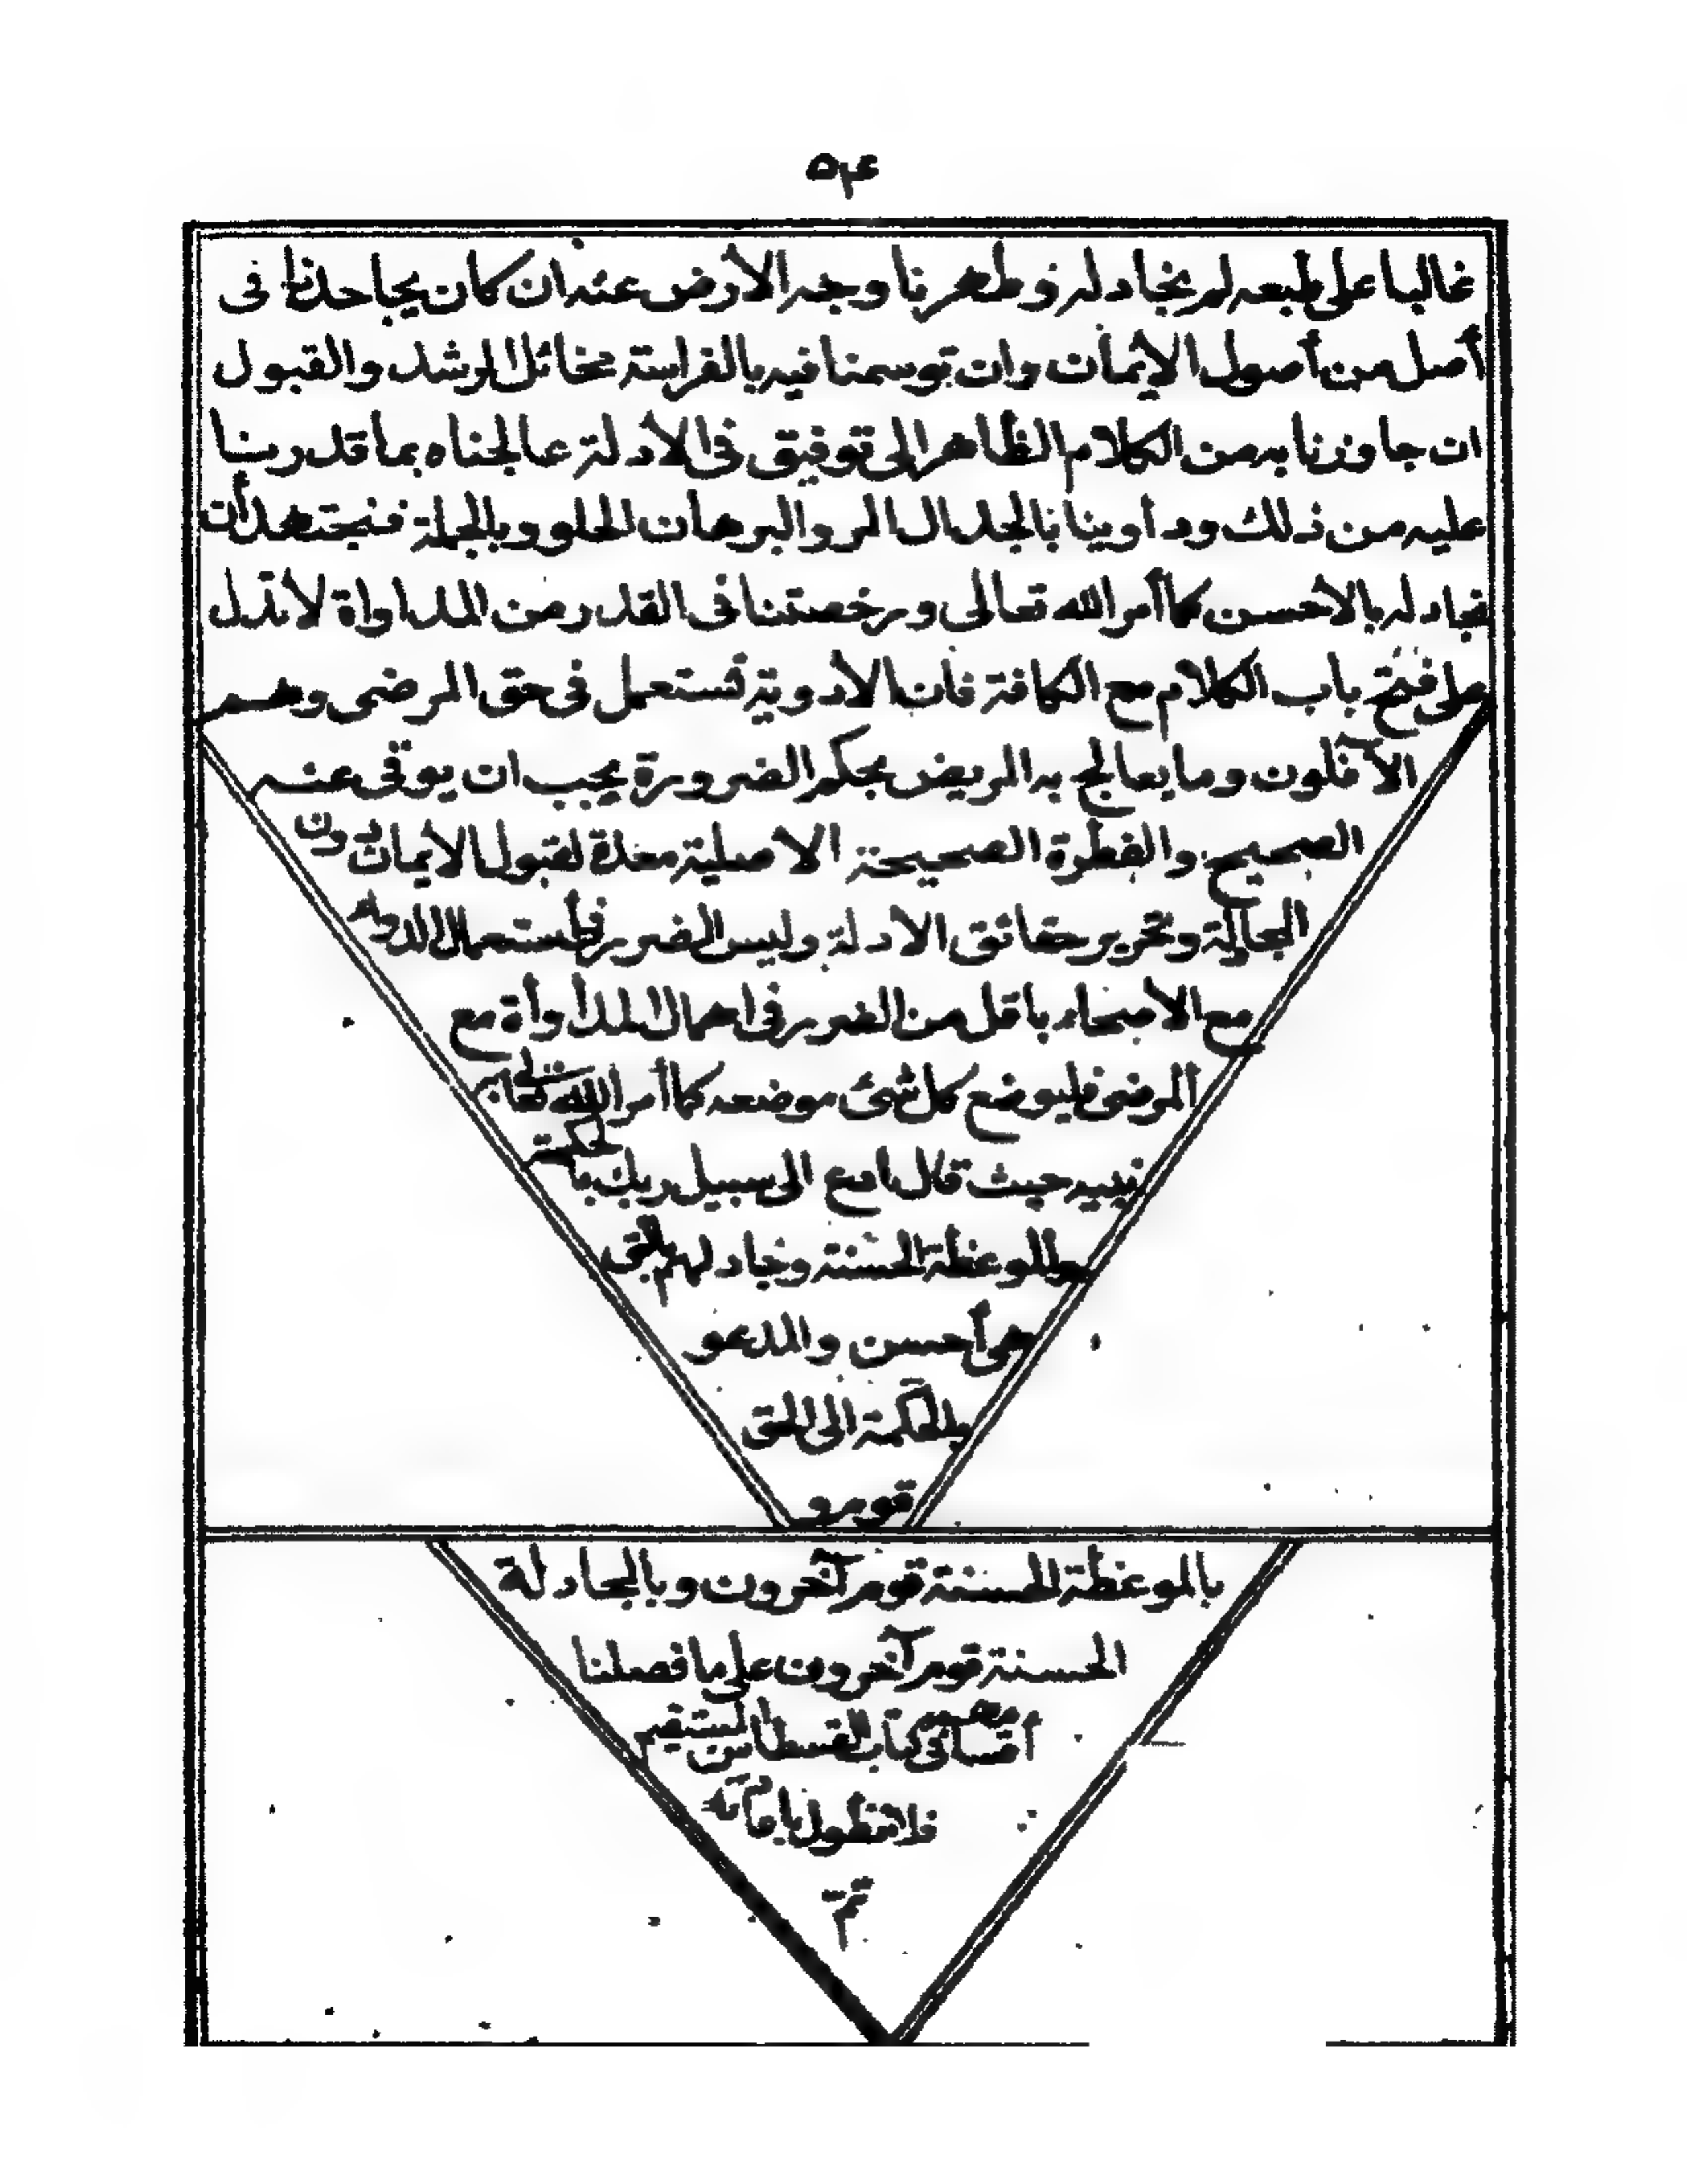 ۵۴
غالبا على طبعه لم نجادله وطهرنا وجه الأرض عنه ان كان يجاحدنا فى
أصل من أصول الإيمان وان توسمنا فيه بالفراسة مخائل الرشد والقبول
ان جاوزنا به من الكلام الظاهر الى توفيق فى الأدلة عالجناه بما قدرنا
عليه من ذلك وداوينا بالجدال المر والبرهان الحلو وبالجملة فنجتهد أن
نجادله بالاحسن كما أمر الله تعالى ورخصتنا فى القدر من المداواة لا تدل
على فتح باب الكلام مع الكافة فان الأدوية تستعمل فى حق المرضى وهم
الآقلون وما يعالج به المريض بحكم الضرورة يجب ان يوقى عنه
الصحيح والفطرة الصحيحة الاصلية معدة لقبول الايمان دون
المجادلة وتحرير حقائق الادلة وليس الضرر فى استعمال الدواء
مع الأصحاء باقل من الضرر فى اهمال المداواة مع
المرضى فليوضع كل شئ موضعه كما أمر الله تعالى به
نبيه حيث قال ادع الى سبيل ربك بالحكمة
والموعظة الحسنة وجادلهم بالتى
هى أحسن والمدعو
بالحكمة الى الحق
قوم و
بالموعظة الحسنة قوم آخرون وبالمجادلة
الحسنة قوم آخرون على ما فصلنا
أقسامهم فى كتاب القسطاس المستقيم
فلا نطول باعادته
تم